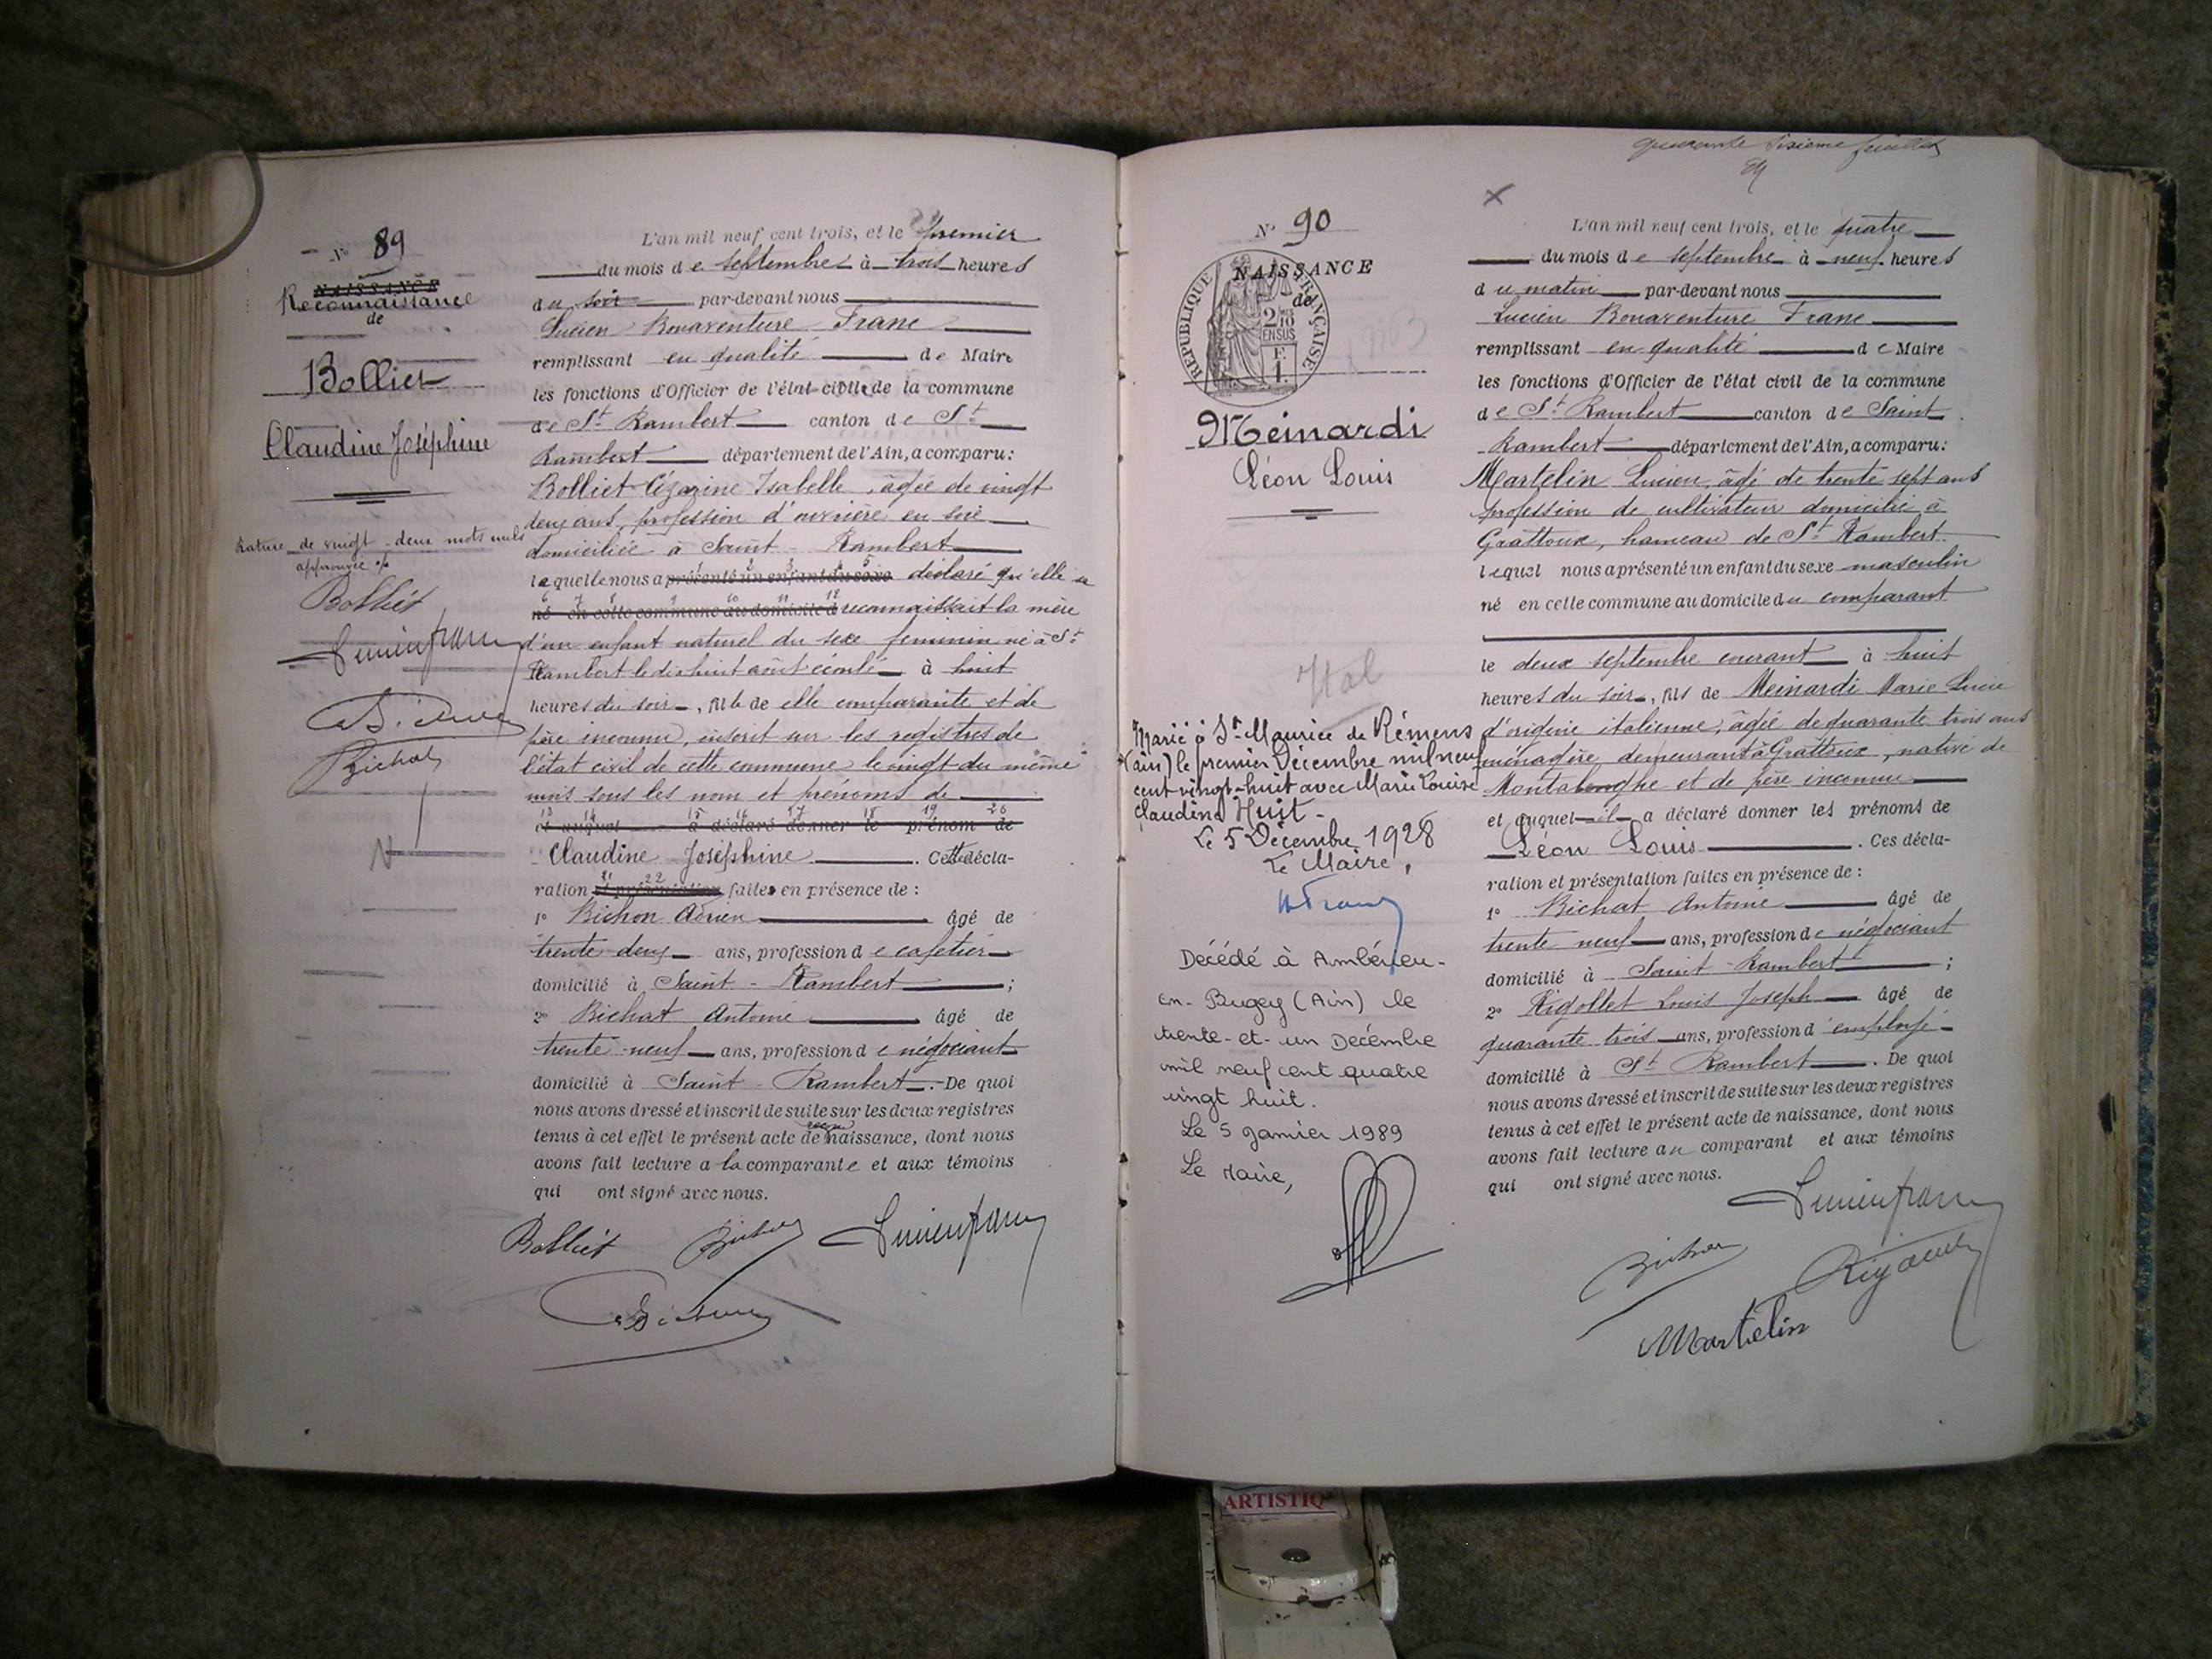 N° 89
NAISSANCE
Reconnaissance
de
Bolliet
Claudine Joséphine
Rature de vingt-deux mots nuls
approuvée
Bolliet
Lucien franc
Bichat
L'an mil neuf cent trois, et le premier
du mois de septembre à trois heures
du soir par-devant nous
Lucien Bonaventure Franc
remplissant en qualité de Maire
les fonctions d'Officier de l'état civil de la commune
de St Rambert canton de St
Rambert département de l'Ain, a comparu:
Bolliet Cézarine Isabelle, âgée de vingt
deux ans, profession d'ouvrière en soie
domiciliée à Saint-Rambert
1 2 3 4 5
laquelle nous a présenté un enfant du sexe déclaré qu'elle se
6 7 8 9 10 11 12
né en cette commune au domicile d reconnaissait la mère
d'un enfant naturel du sexe féminin né à St
Rambert le dix huit août écoulé à huit
heures du soir, fille de elle comparante et de
père inconnu, inscrit sur les registres de
l'état civil de cette commune le vingt du même
mois sous les nom et prénoms de
13 14 15 16 17 18 19 20
et auquel a déclaré donner le prénom de
Claudine Joséphine. Cette décla-
21 22
ration et présentation faites en présence de :
1° Bichon Adrien âgé de
trente deux ans, profession de cafetier
domicilié à Saint-Rambert ;
2° Bichat Antoine âgé de
trente-neuf ans, profession de négociant
domicilié à Saint-Rambert. De quoi
nous avons dressé et inscrit de suite sur les deux registres
tenus à cet effet le présent acte de naissance, dont nous
avons fait lecture a la comparante et aux témoins
qui ont signé avec nous.
Bolliet Bichat Lucien franc
quarante sixième feuillet
N° 90
NAISSANCE
de
REPUBLIQUE FRANÇAISE
2/10
EN SUS
F.
1.
Meinardi
Léon Louis
Ital
Marié à St Maurice de Rémens
(ain) le premier Décembre mil neuf
cent vingt-huit avec Marie Louise
Claudine Huit-
Le 5 Décembre 1928
Le Maire,
Décédé à Ambérieu-
en-Bugey (Ain) le
trente-et-un Décembre
mil neuf cent quatre
vingt huit.
Le 5 Janvier 1989
Le Maire,
L'an mil neuf cent trois, et le quatre
du mois de septembre à neuf heures
du matin par-devant nous
Lucien Bonaventure Franc
remplissant en qualité de Maire
les fonctions d'Officier de l'état civil de la commune
de St Rambert canton de Saint
Rambert département de l'Ain, a comparu:
Martelin Lucien, âgé de trente sept ans
profession de cultivateur domicilié à
Grattoux, hameau de St Rambert.
lequel nous a présenté un enfant du sexe masculin
né en cette commune au domicile du comparant
le deux septembre courant à huit
heures du soir, fils de Meinardi Marie Lucie
d'origine italienne, âgée de quarante trois ans
ménagère, demeurant à Grattoux, native de
Montalenghe et de père inconnu
et auquel il a déclaré donner les prénoms de
Léon Louis. Ces décla-
ration et présentation faites en présence de :
1° Bichat Antoine âgé de
trente neuf ans, profession de négociant
domicilié à Saint-Rambert ;
2° Rigollet Louis Joseph âgé de
quarante trois ans, profession d'employé
domicilié à St Rambert. De quoi
nous avons dressé et inscrit de suite sur les deux registres
tenus à cet effet le présent acte de naissance, dont nous
avons fait lecture au comparant et aux témoins
qui ont signé avec nous.
Lucien franc
Martelin
ARTISTIQ